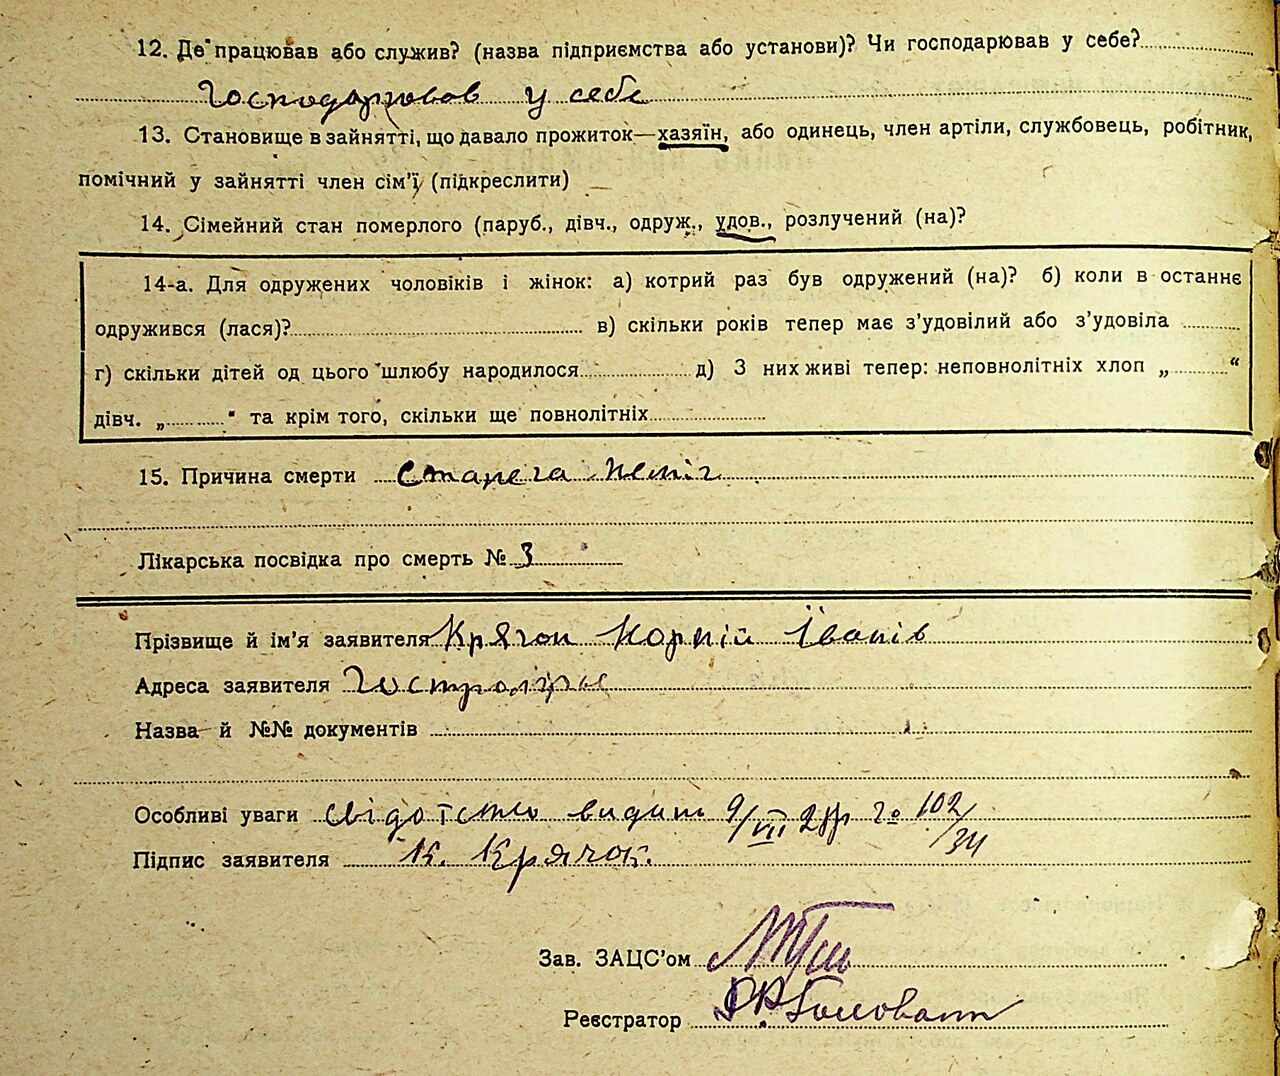 12. Де працював або служив? (назва підприємства або установи)? Чи господарював у себе?
Господарював у себе
13. Становище в зайнятті, що давало прожиток—хазяїн, або одинець, член артіли, службовець, робітник,
помічний у зайнятті член сім'ї (підкреслити)
14. Сімейний стан померлого (паруб., дівч., одруж., удов., розлучений (на)?
14-а. Для одружених чоловіків і жінок: а) котрий раз був одружений (на)? б) коли в останнє
одружився (лася)? в) скільки років тепер має з'удовілий або з'удовіла
г) скільки дітей од цього шлюбу народилося д) З них живі тепер: неповнолітніх хлоп „ “
дівч. „ “ та крім того, скільки ще повнолітніх
15. Причина смерти Старега неміч
Лікарська посвідка про смерть № 3
Прізвище й ім'я заявителя Крячок Корній Іванів
Адреса заявителя
Назва й №№ документів
Особливі уваги свідотство 9/VII 102/34
Підпис заявителя К. Крячок.
Зав. ЗАЦС'ом
Реєстратор